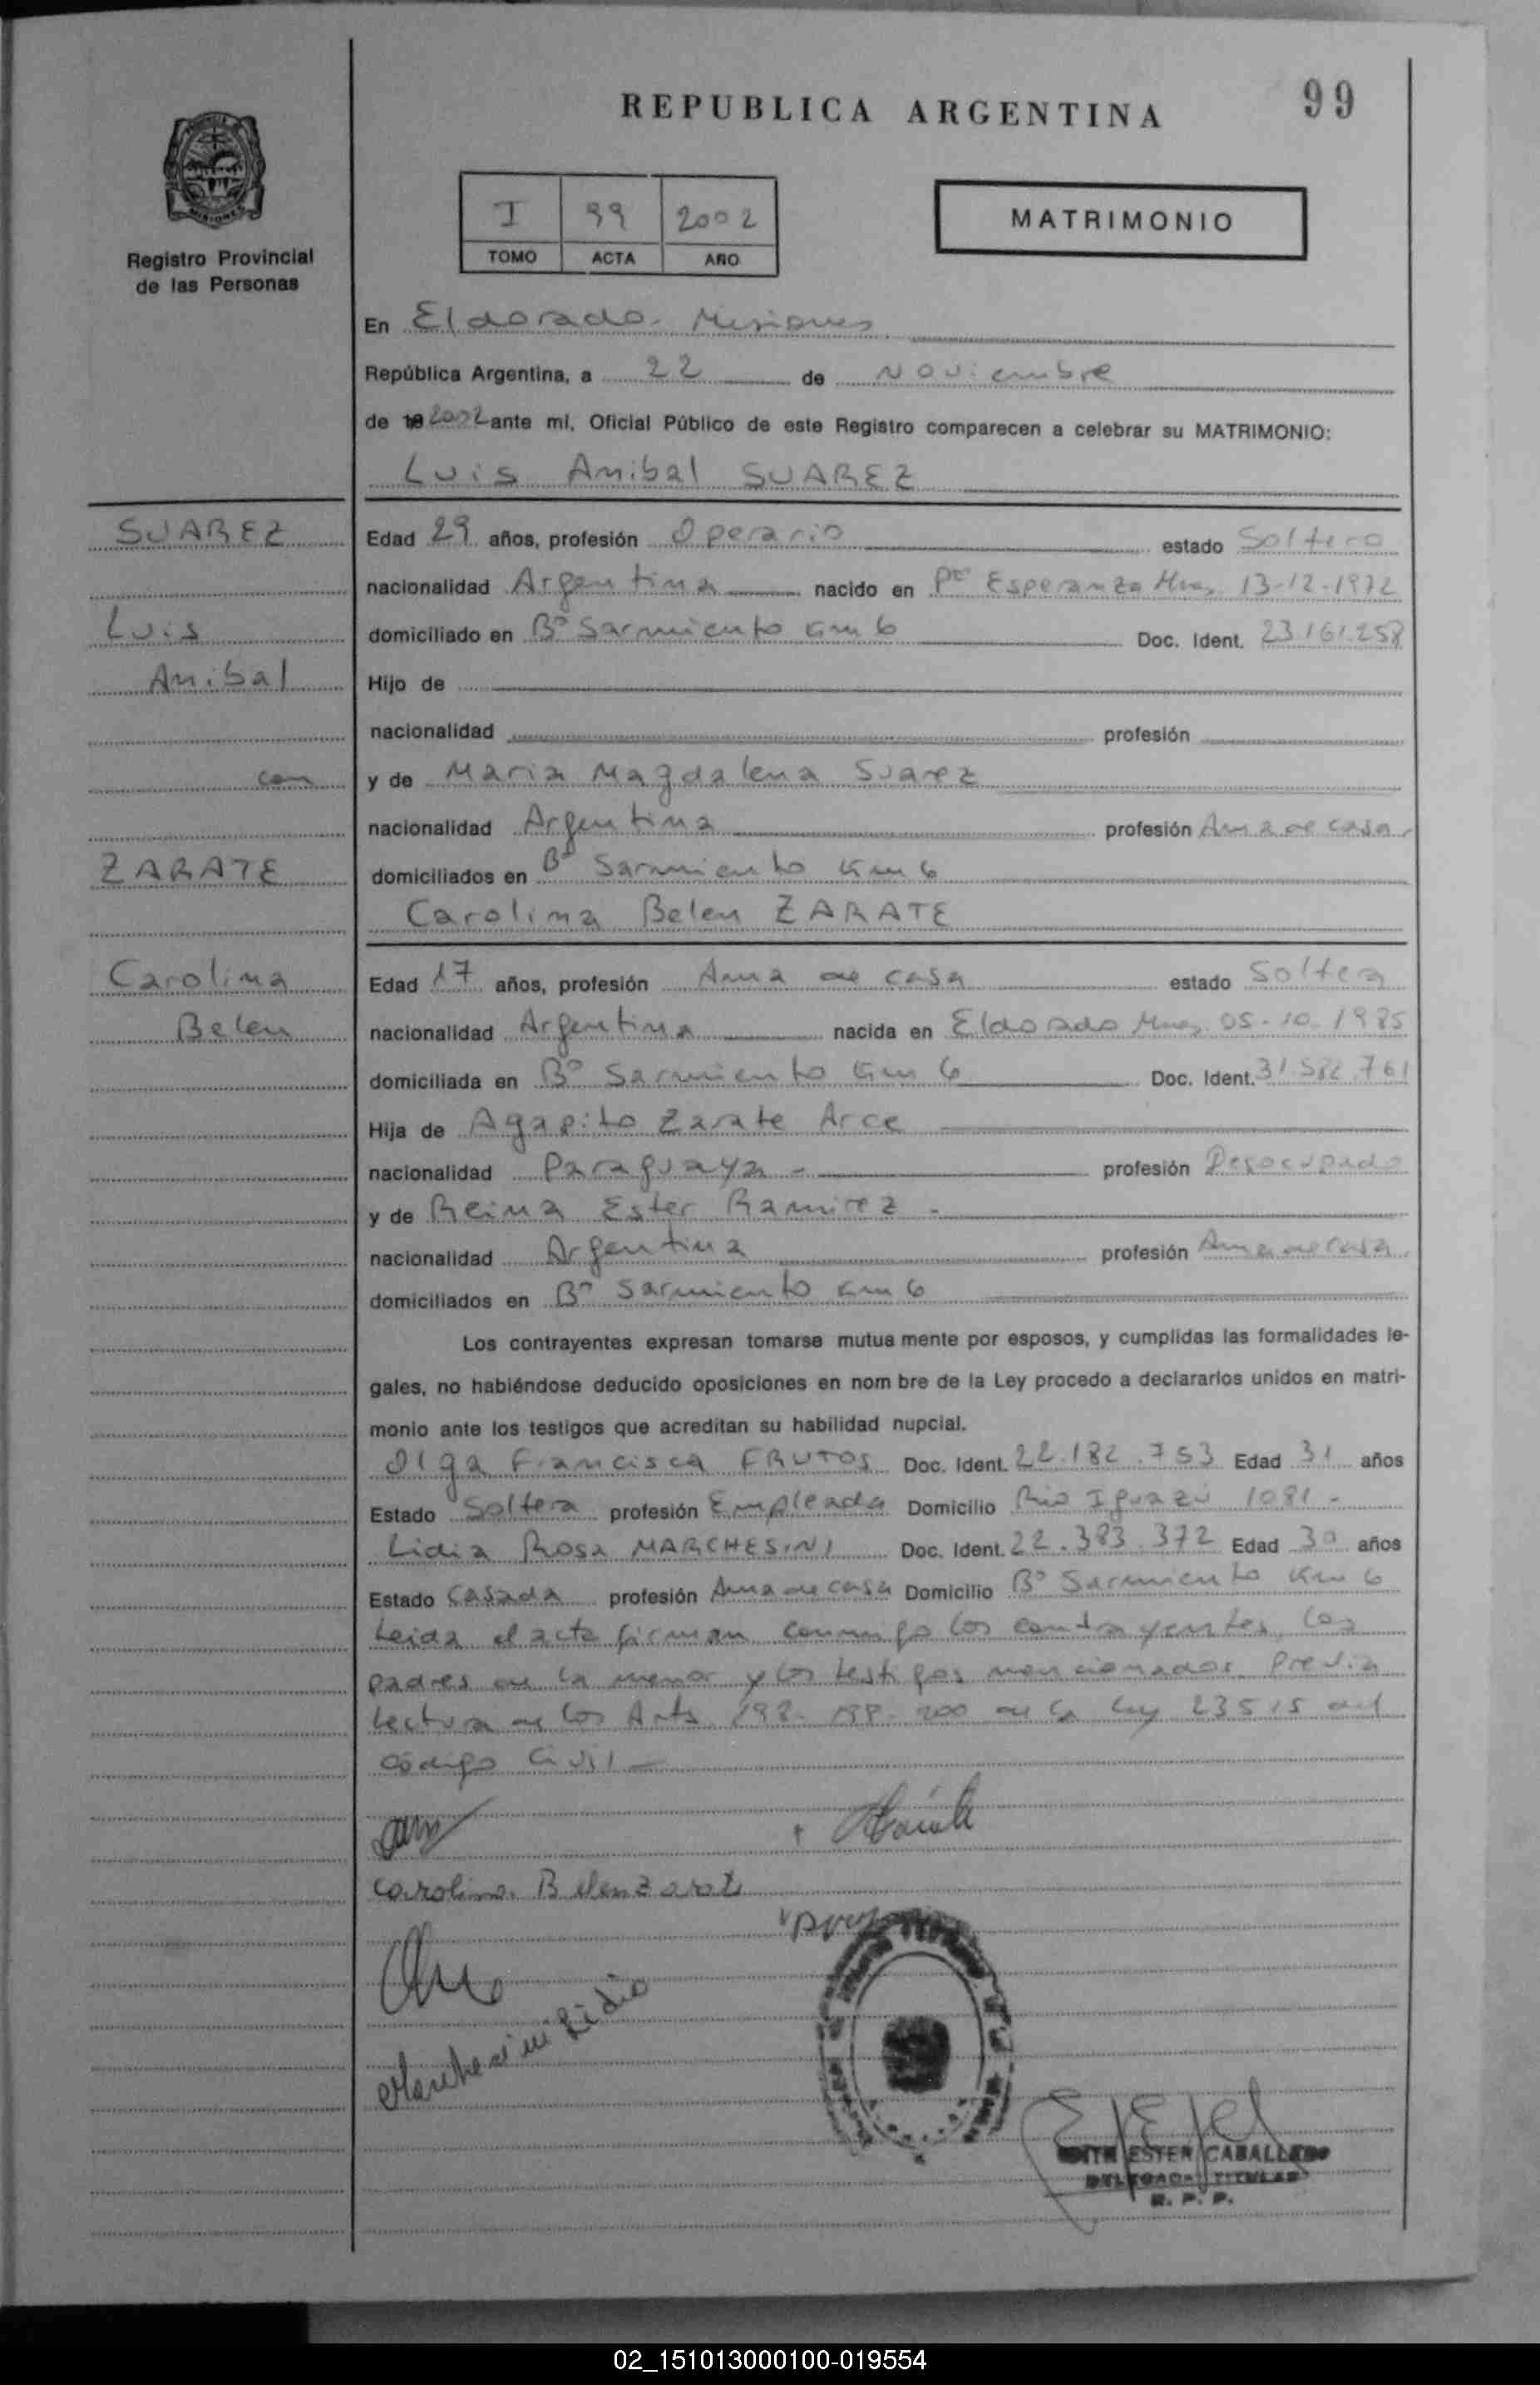 REPUBLICA ARGENTINA
99
MISIONES
Registro Provincial
de las Personas
I 99 2002
TOMO ACTA AÑO
MATRIMONIO
En Eldorado - Misiones
República Argentina, a 22 de Noviembre
de 19 2002 ante mí, Oficial Público de este Registro comparecen a celebrar su MATRIMONIO:
Luis Anibal SUAREZ
SUAREZ
Luis
Anibal
con
ZARATE
Carolina
Belen
Edad 29 años, profesión Operario estado Soltero
nacionalidad Argentina nacido en Pto Esperanza Mnes. 13-12-1972
domiciliado en Bº Sarmiento Km 6 Doc. Ident. 23.161.258
Hijo de
nacionalidad profesión
y de Maria Magdalena Suarez
nacionalidad Argentina profesión Ama de casa
domiciliados en Bº Sarmiento Km 6
Carolina Belen ZARATE
Edad 17 años, profesión Ama de casa estado Soltera
nacionalidad Argentina nacida en Eldorado Mnes. 05-10-1985
domiciliada en Bº Sarmiento Km 6 Doc. Ident. 31.582.761
Hija de Agapito Zarate Arce
nacionalidad Paraguaya - profesión Desocupado
y de Reina Ester Ramirez -
nacionalidad Argentina profesión Ama de casa
domiciliados en Bº Sarmiento Km 6
Los contrayentes expresan tomarse mutua mente por esposos, y cumplidas las formalidades le-
gales, no habiéndose deducido oposiciones en nom bre de la Ley procedo a declararlos unidos en matri-
monio ante los testigos que acreditan su habilidad nupcial.
Olga Francisca FRUTOS Doc. Ident. 22.182.753 Edad 31 años
Estado Soltera profesión Empleada Domicilio Rio Iguazú 1081 -
Lidia Rosa MARCHESINI Doc. Ident. 22.383.372 Edad 30 años
Estado Casada profesión Ama de casa Domicilio Bº Sarmiento Km 6
Leida el acta firman conmigo los contrayentes, los
padres de la menor y los testigos mencionados previa
lectura de los Arts. 198-199-200 de la Ley 23515 del
Código Civil -
Carolina Belen Zarate
Marchesini Lidia
EDITH ESTER CABALLERO
DELEGADA TITULAR
R. P. P.
02_151013000100-019554